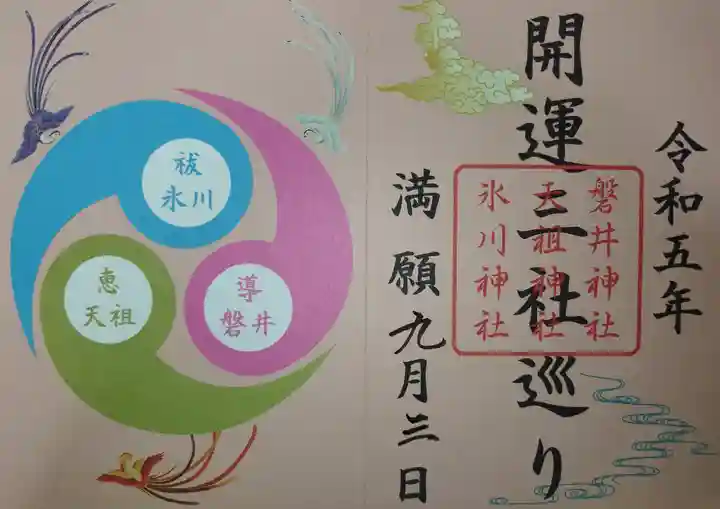 令和五年
開運三社巡り
磐井神社
天祖神社
氷川神社
満願九月三日
祓
氷川
恵
天祖
導
磐井